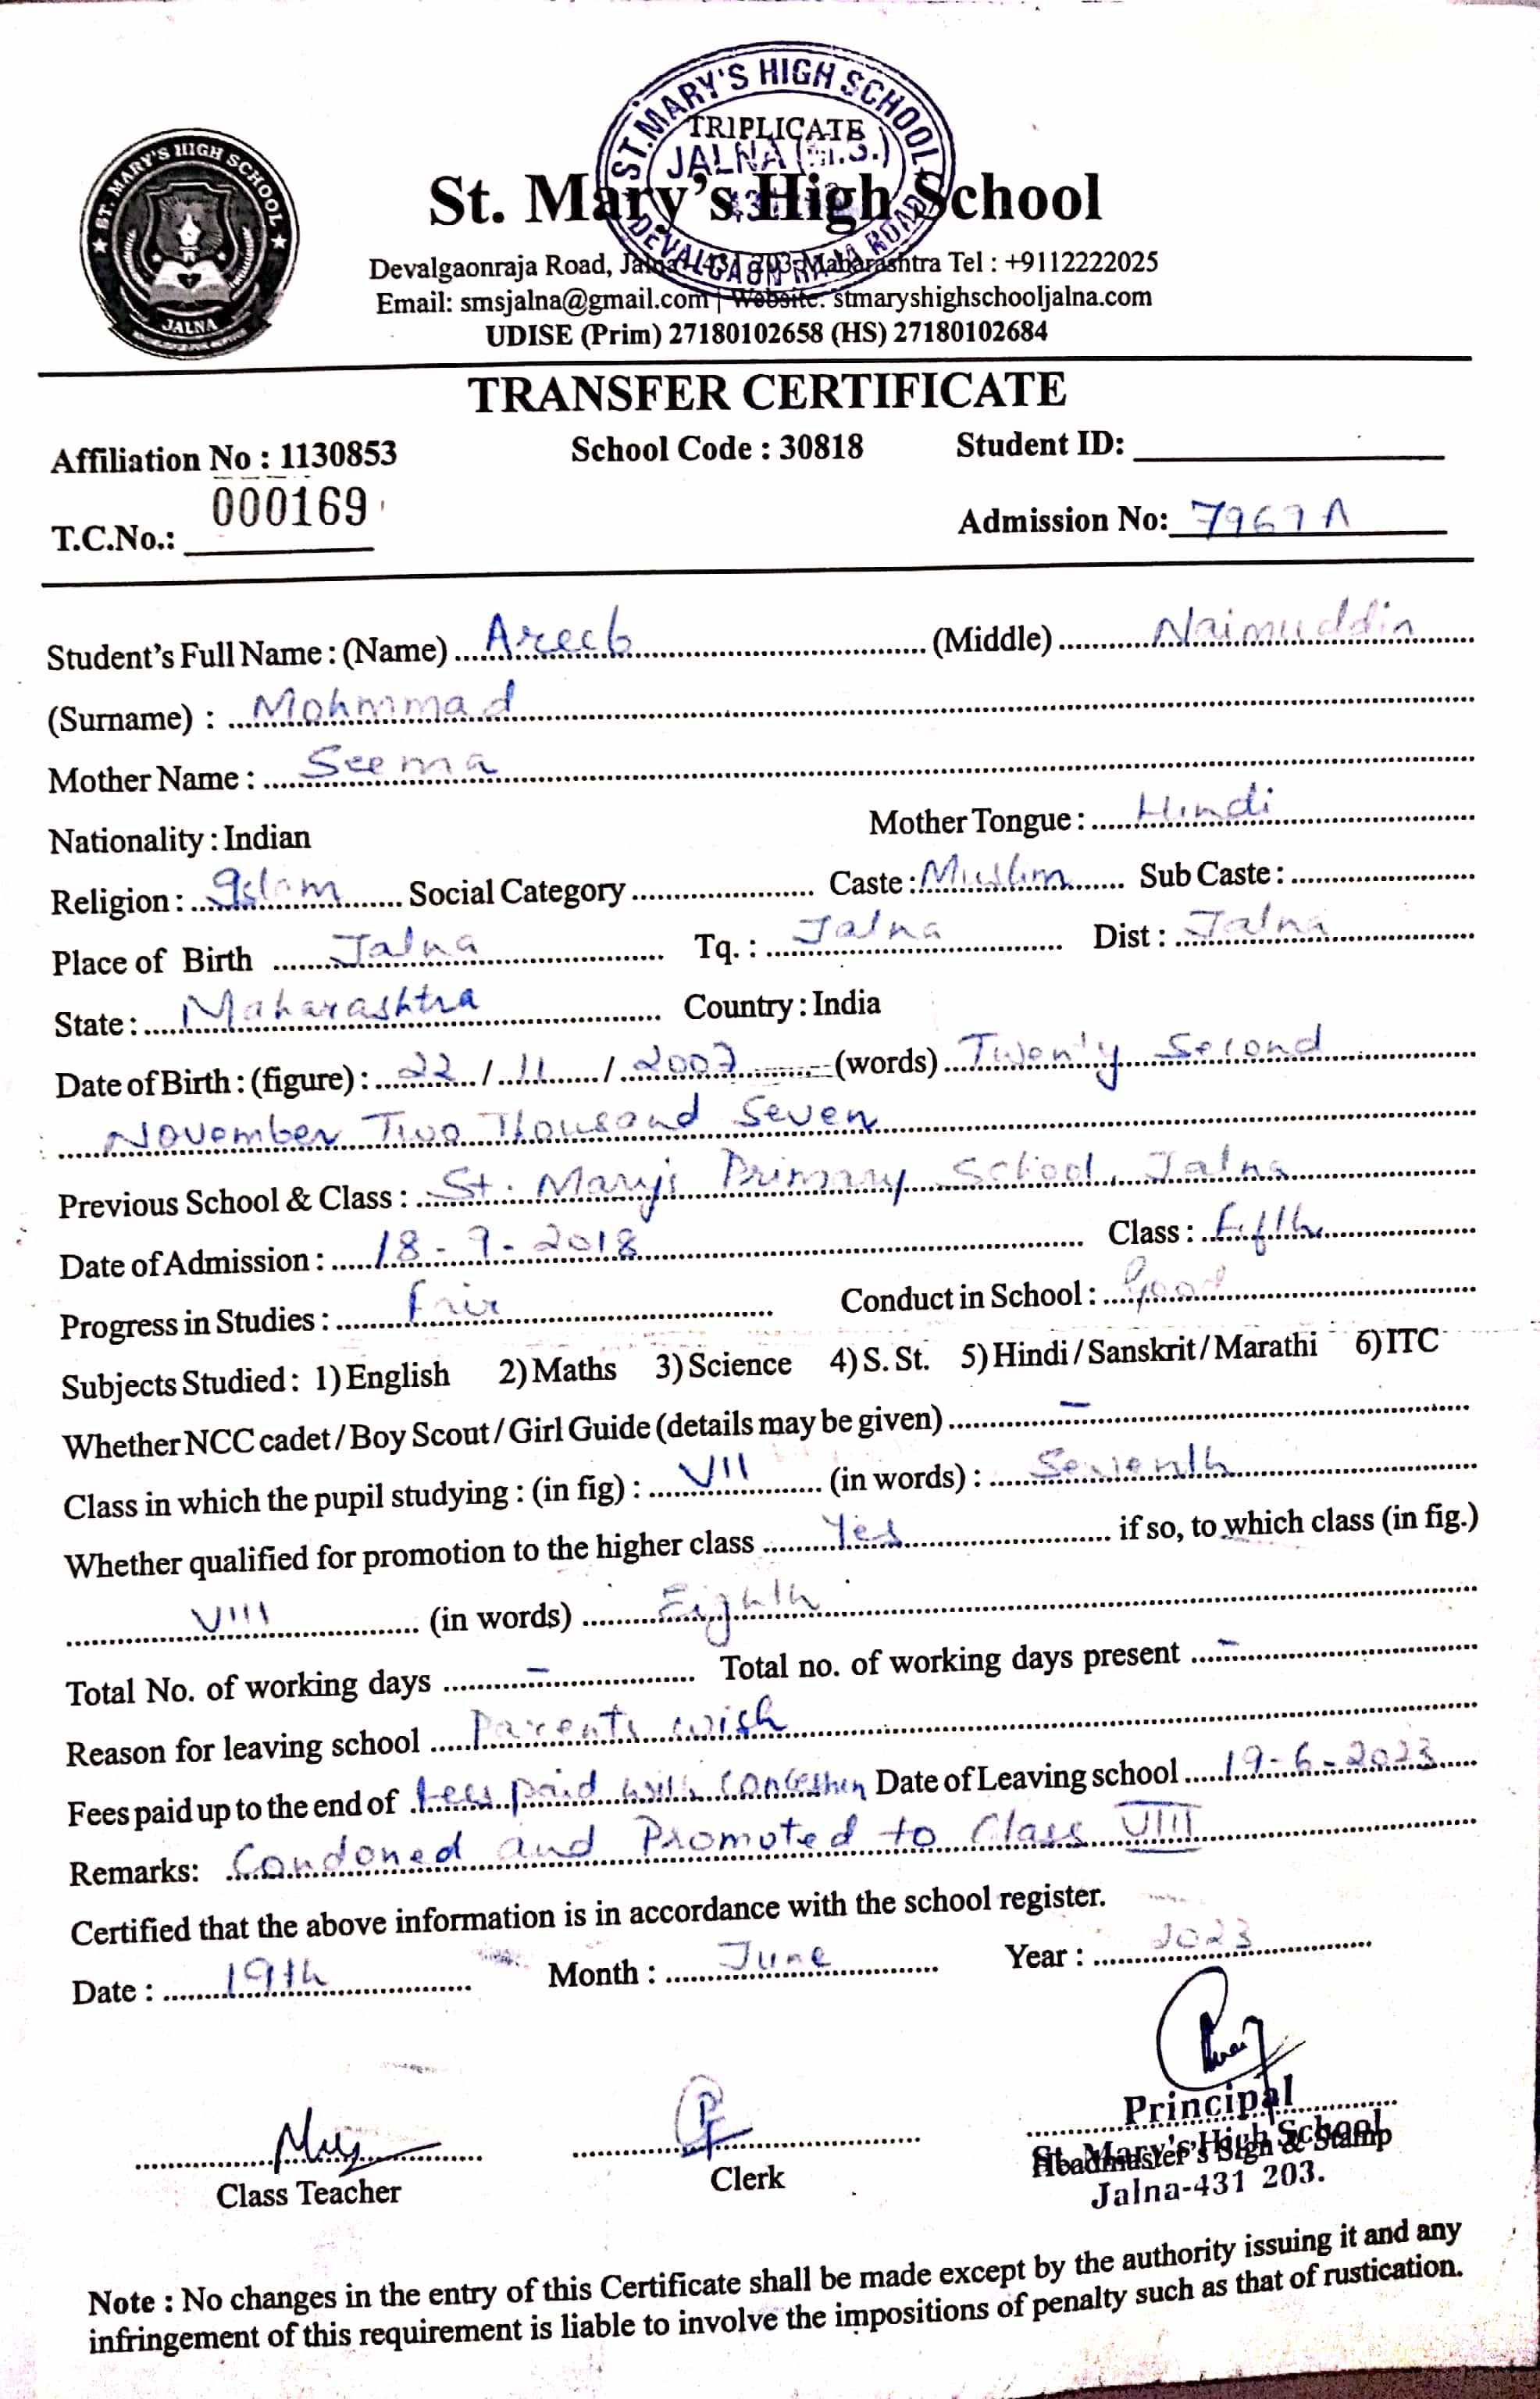 ST. MARY'S HIGH SCHOOL
TRIPLICATE
JALNA (M.S.)
DEVALGAON RAJA ROAD
ST. MARY'S HIGH SCHOOL
JALNA
St. Mary's High School
Devalgaonraja Road, Jalna-431 203-Maharashtra Tel : +9112222025
Email: smsjalna@gmail.com | Website: stmaryshighschooljalna.com
UDISE (Prim) 27180102658 (HS) 27180102684
TRANSFER CERTIFICATE
Affiliation No : 1130853 School Code : 30818 Student ID:
T.C.No.: 000169 Admission No: 7967 A
Student's Full Name : (Name) Areeb (Middle) Naimuddin
(Surname) : Mohmmad
Mother Name : Seema
Nationality : Indian Mother Tongue : Hindi
Religion : Islam Social Category Caste : Muslim Sub Caste :
Place of Birth Jalna Tq. : Jalna Dist : Jalna
State : Maharashtra Country : India
Date of Birth : (figure) : 22 / 11 / 2007 (words) Twenty Second
November Two Thousand Seven
Previous School & Class : St. Mary's Primary School, Jalna
Date of Admission : 18-9-2018 Class : Fifth
Progress in Studies : Fair Conduct in School : Good
Subjects Studied : 1) English 2) Maths 3) Science 4) S. St. 5) Hindi / Sanskrit / Marathi 6) ITC
Whether NCC cadet / Boy Scout / Girl Guide (details may be given) –
Class in which the pupil studying : (in fig) : VII (in words) : Seventh
Whether qualified for promotion to the higher class Yes if so, to which class (in fig.)
VIII (in words) Eighth
Total No. of working days – Total no. of working days present –
Reason for leaving school Parents wish
Fees paid up to the end of Fees paid with Date of Leaving school 19-6-2023
Remarks: Condoned and Promoted to Class VIII
Certified that the above information is in accordance with the school register.
Date : 19th Month : June Year : 2023
Class Teacher Clerk Headmaster's Sign & Stamp
Principal
St. Mary's High School
Jalna-431 203.
Note : No changes in the entry of this Certificate shall be made except by the authority issuing it and any
infringement of this requirement is liable to involve the impositions of penalty such as that of rustication.